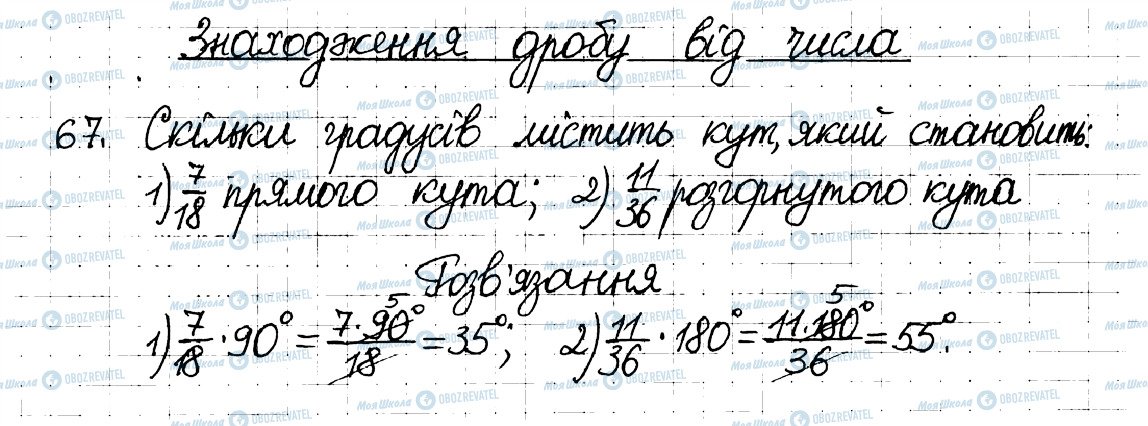 Знаходження дробу від числа
67. Скільки градусів містить кут, який становить:
1) 7/18 прямого кута; 2) 11/36 розгорнутого кута
Розв'язання
1) 7/18 · 90° = 7·90°/18 = 35°; 2) 11/36 · 180° = 11·180°/36 = 55°.